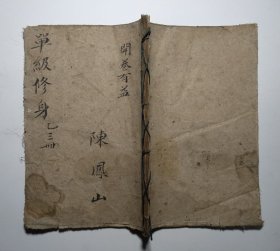 開卷有益
陳鳳山
單級修身乙三冊